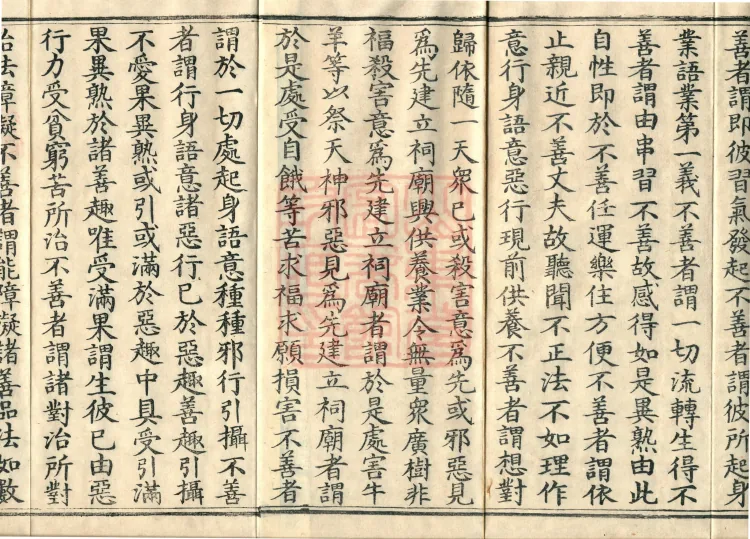 善者謂即彼習氣發起不善者謂彼所起身
業語業第一義不善者謂一切流轉生得不
善者謂由串習不善故感得如是異熟由此
自性即於不善任運樂住方便不善者謂依
止親近不善丈夫故聽聞不正法不如理作
意行身語意惡行現前供養不善者謂想對
歸依隨一天眾已或殺害意爲先或邪惡見
爲先建立祠廟興供養業令無量眾廣樹非
福殺害意爲先建立祠廟者謂於是處害牛
羊等以祭天神邪惡見爲先建立祠廟者謂
於是處受自餓等苦求福求願損害不善者
謂於一切處起身語意種種邪行引攝不善
者謂行身語意諸惡行已於惡趣善趣引攝
不愛果異熟或引或滿於惡趣中具受引滿
果異熟於諸善趣唯受滿果謂生彼已由惡
行力受貧窮苦所治不善者謂諸對治所對
治法障礙不善者謂能障礙諸善品法如數